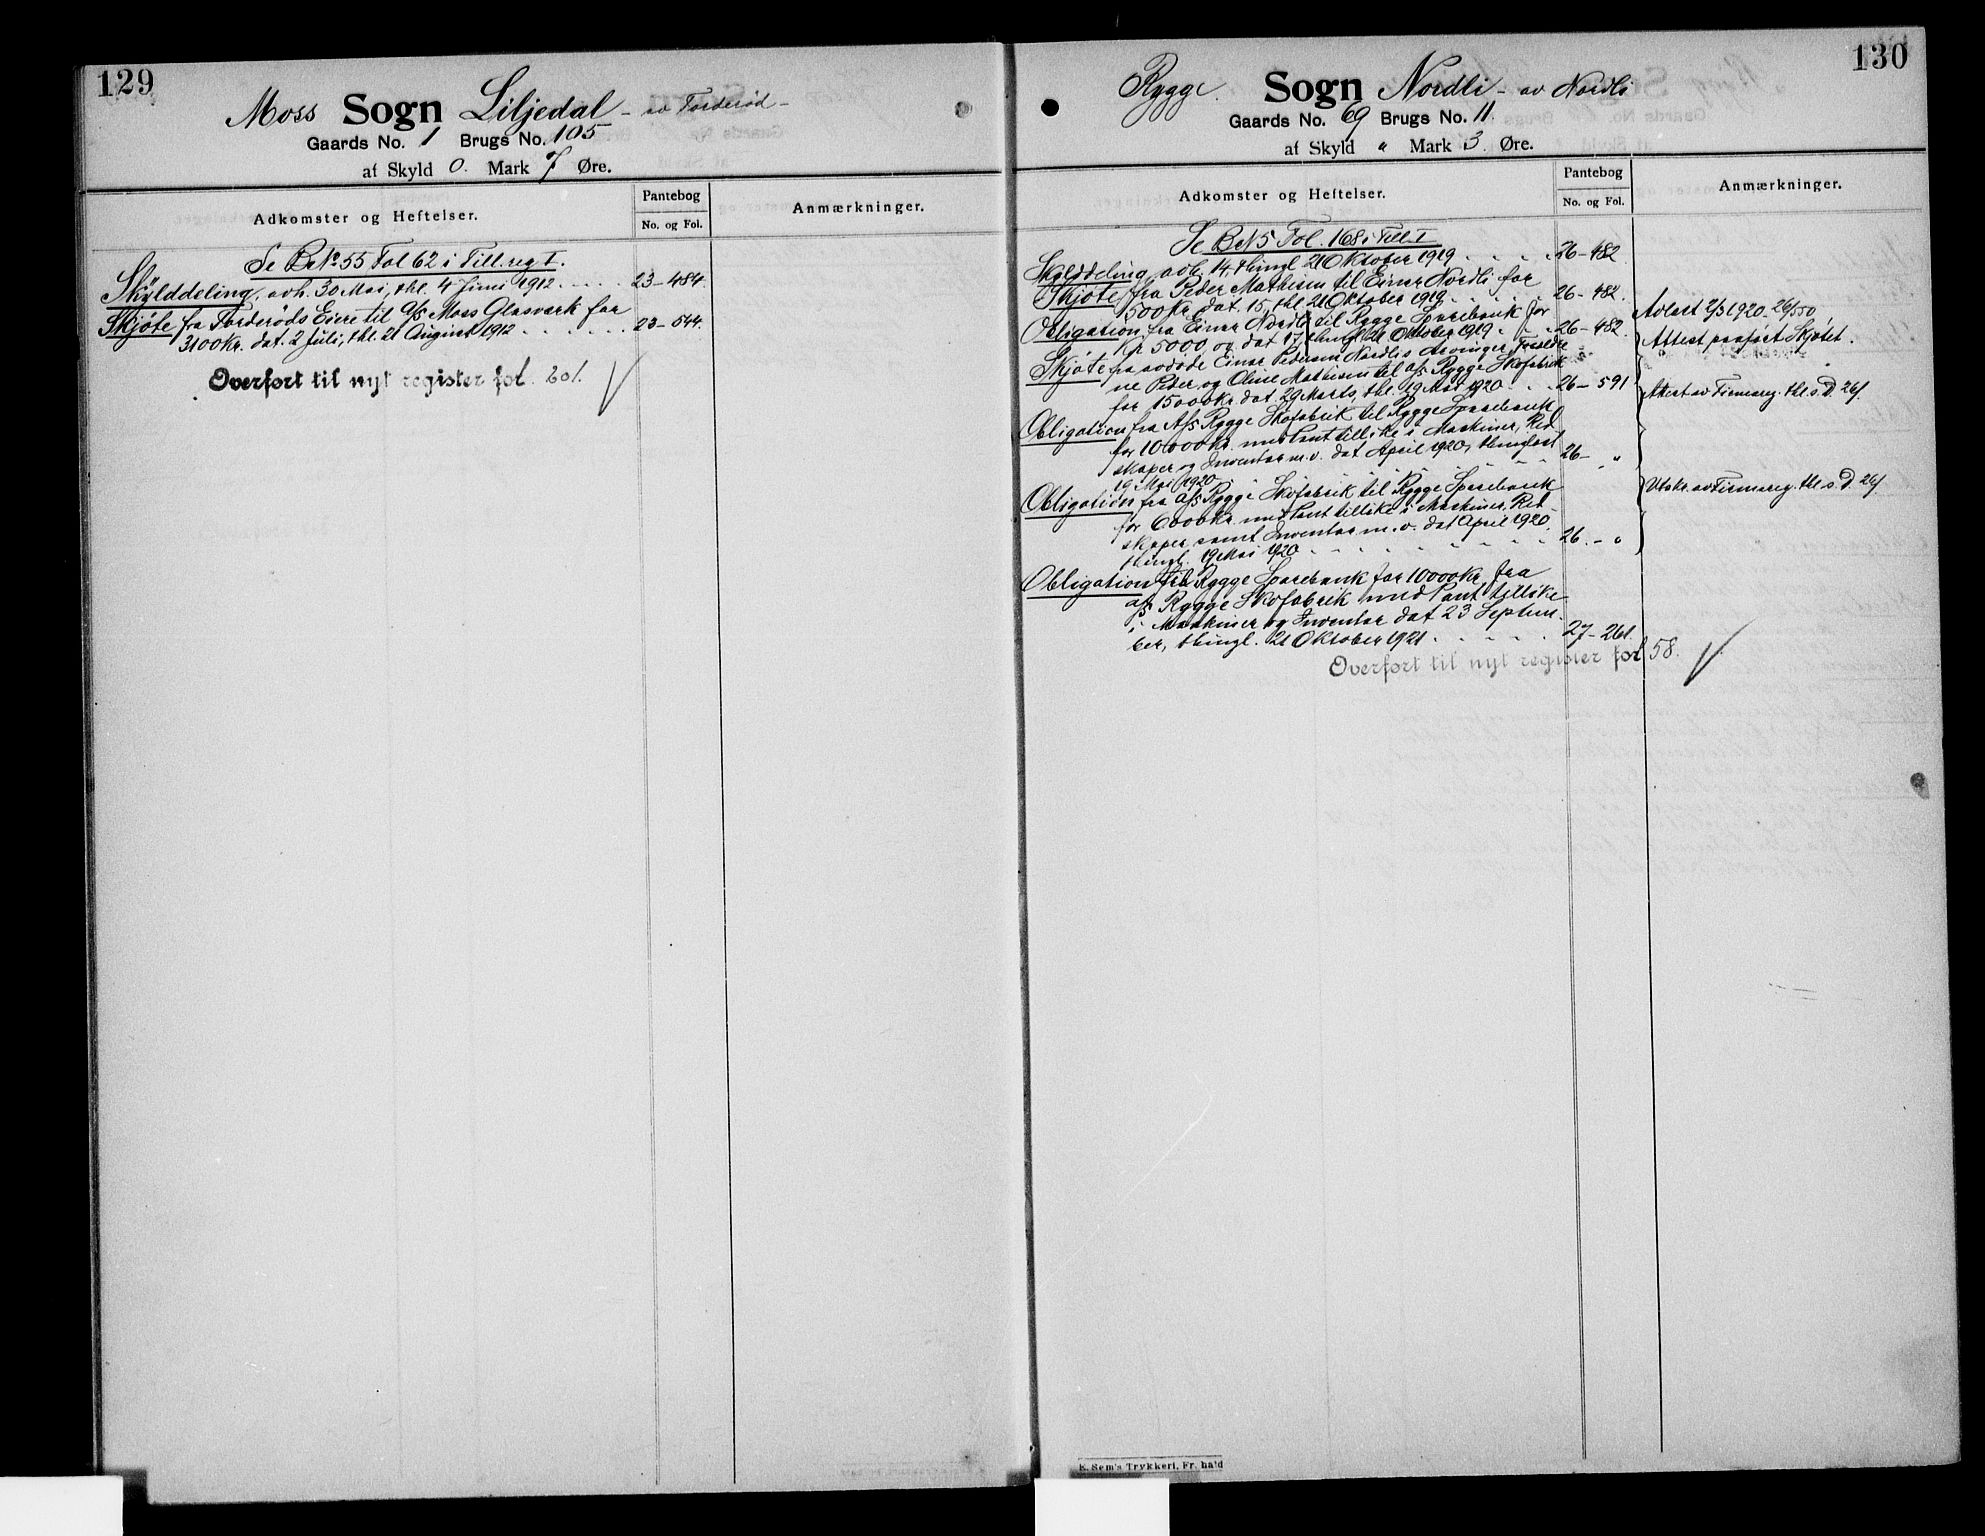 129
Moss Sogn Liljedal - av Torderød -
Gaards No. 1 Brugs No. 105
af Skyld 0. Mark 7 Øre.
Adkomster og Heftelser.
Pantebog
No. og Fol.
Anmærkninger.
Se BrNº 55 Fol 62 i Till. reg I.
Skylddeling, avh. 30 Mai, thl. 4 Juni 1912 . . . . 23-484.
Skjøte fra Torderøds Eiere til A/S Moss Glasværk for
3100 Kr. dat. 2 Juli, thl. 21 August 1912 . . . . . . . 23-544.
Overført til nyt register fol. 201.
130
Rygge. Sogn Nordli - av Nordli
Gaards No. 69 Brugs No. 11.
af Skyld " Mark 3. Øre.
Adkomster og Heftelser.
Pantebog
No. og Fol.
Anmærkninger.
Se BrN 5 Fol. 168 i Till. I
Skylddeling, avh. 14, thingl 21 Oktober 1919 . . . . 26-482.
Skjøte fra Peder Mathisen til Einar Nordli for
500 Kr. dat. 15, thl. 21 Oktober 1919 . . . . . 26-482.
Obligation fra Einar Nordli til Rygge Sparebank for
Kr 5000 og dat 17, thingl. 21 Oktober 1919 . . . 26-482.
Avlæst 2/3 1920. 26/550
Skjøte fra avdøde Einar Pedersen Nordlis Arvinger, Forældre
ne Peder og Oline Mathisen til A/S Rygge Skofabrik
for 15000 Kr. dat. 29 Marts, thl. 19 Mai 1920 . . . 26-591
Attest paaført Skjøtet.
Obligation fra A/S Rygge Skofabrik til Rygge Sparebank
for 10000 Kr. med Pant tillike i Maskiner, Red
skaper og Inventar m.v. dat April 1920, thinglæst
19 Mai 1920 . . . . . . 26- "
Attest av Firmareg. thl. s. D. 26/
Obligation fra A/S Rygge Skofabrik til Rygge Sparebank
for 6000 Kr. med Pant tillike i Maskiner, Red-
skaper samt Inventar m.v. dat April 1920,
thingl. 19 Mai 1920 . . . . . . . 26.- "
Utskr. av Firmareg. thl. s. D. 26/
Obligation til Rygge Sparebank for 10000 Kr. fra
A/S Rygge Skofabrik med Pant tillike
i Maskiner og Inventar dat 23 Septem-
ber, thingl. 21 Oktober 1921 . . . . . 27-261.
Overført til nyt register fol 58.
E. Sem's Trykkeri, Fr.hald